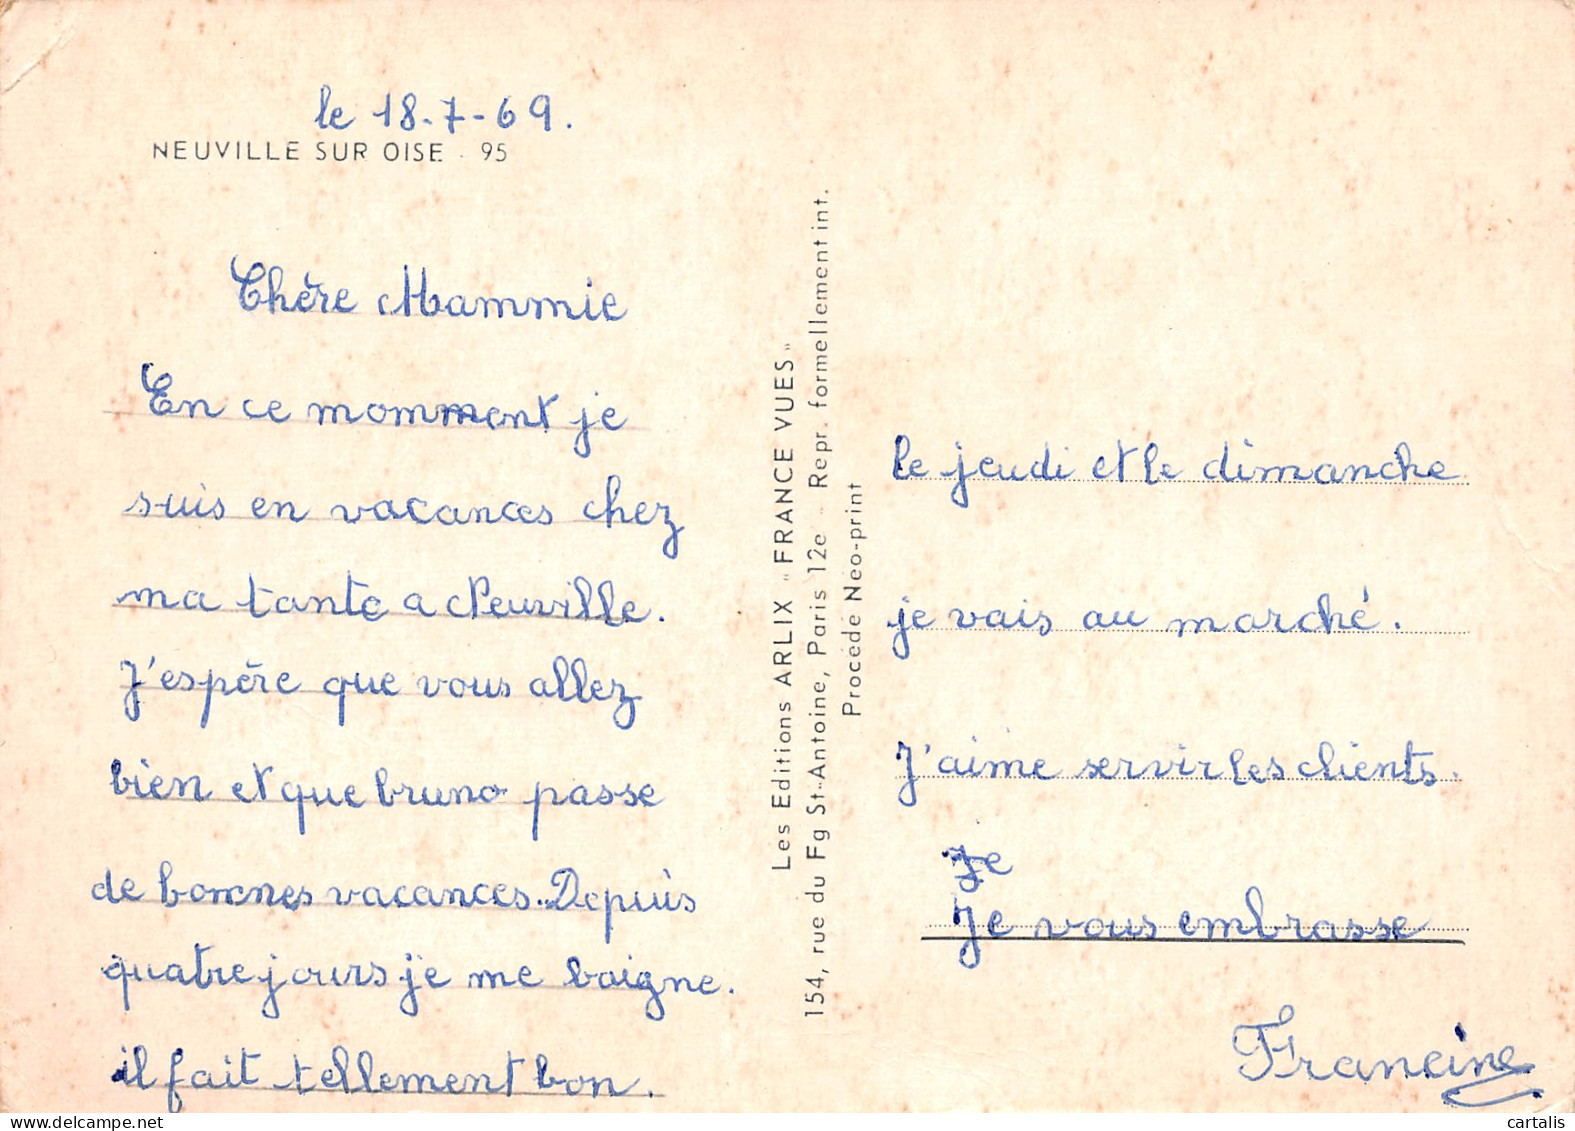 le 18-7-69.
NEUVILLE SUR OISE - 95
Chère Mammie
En ce momment je
suis en vacances chez
ma tante a Neuville.
J'espère que vous allez
bien et que bruno passe
de bonnes vacances. Depuis
quatre jours je me baigne.
il fait tellement bon.
Les Editions ARLIX "FRANCE VUES"
154, rue du Fg St-Antoine, Paris 12e - Repr. formellement int.
Procédé Neo-print
le jeudi et le dimanche
je vais au marché.
J'aime servir les clients.
Je
Je vous embrasse
Francine
cartalis